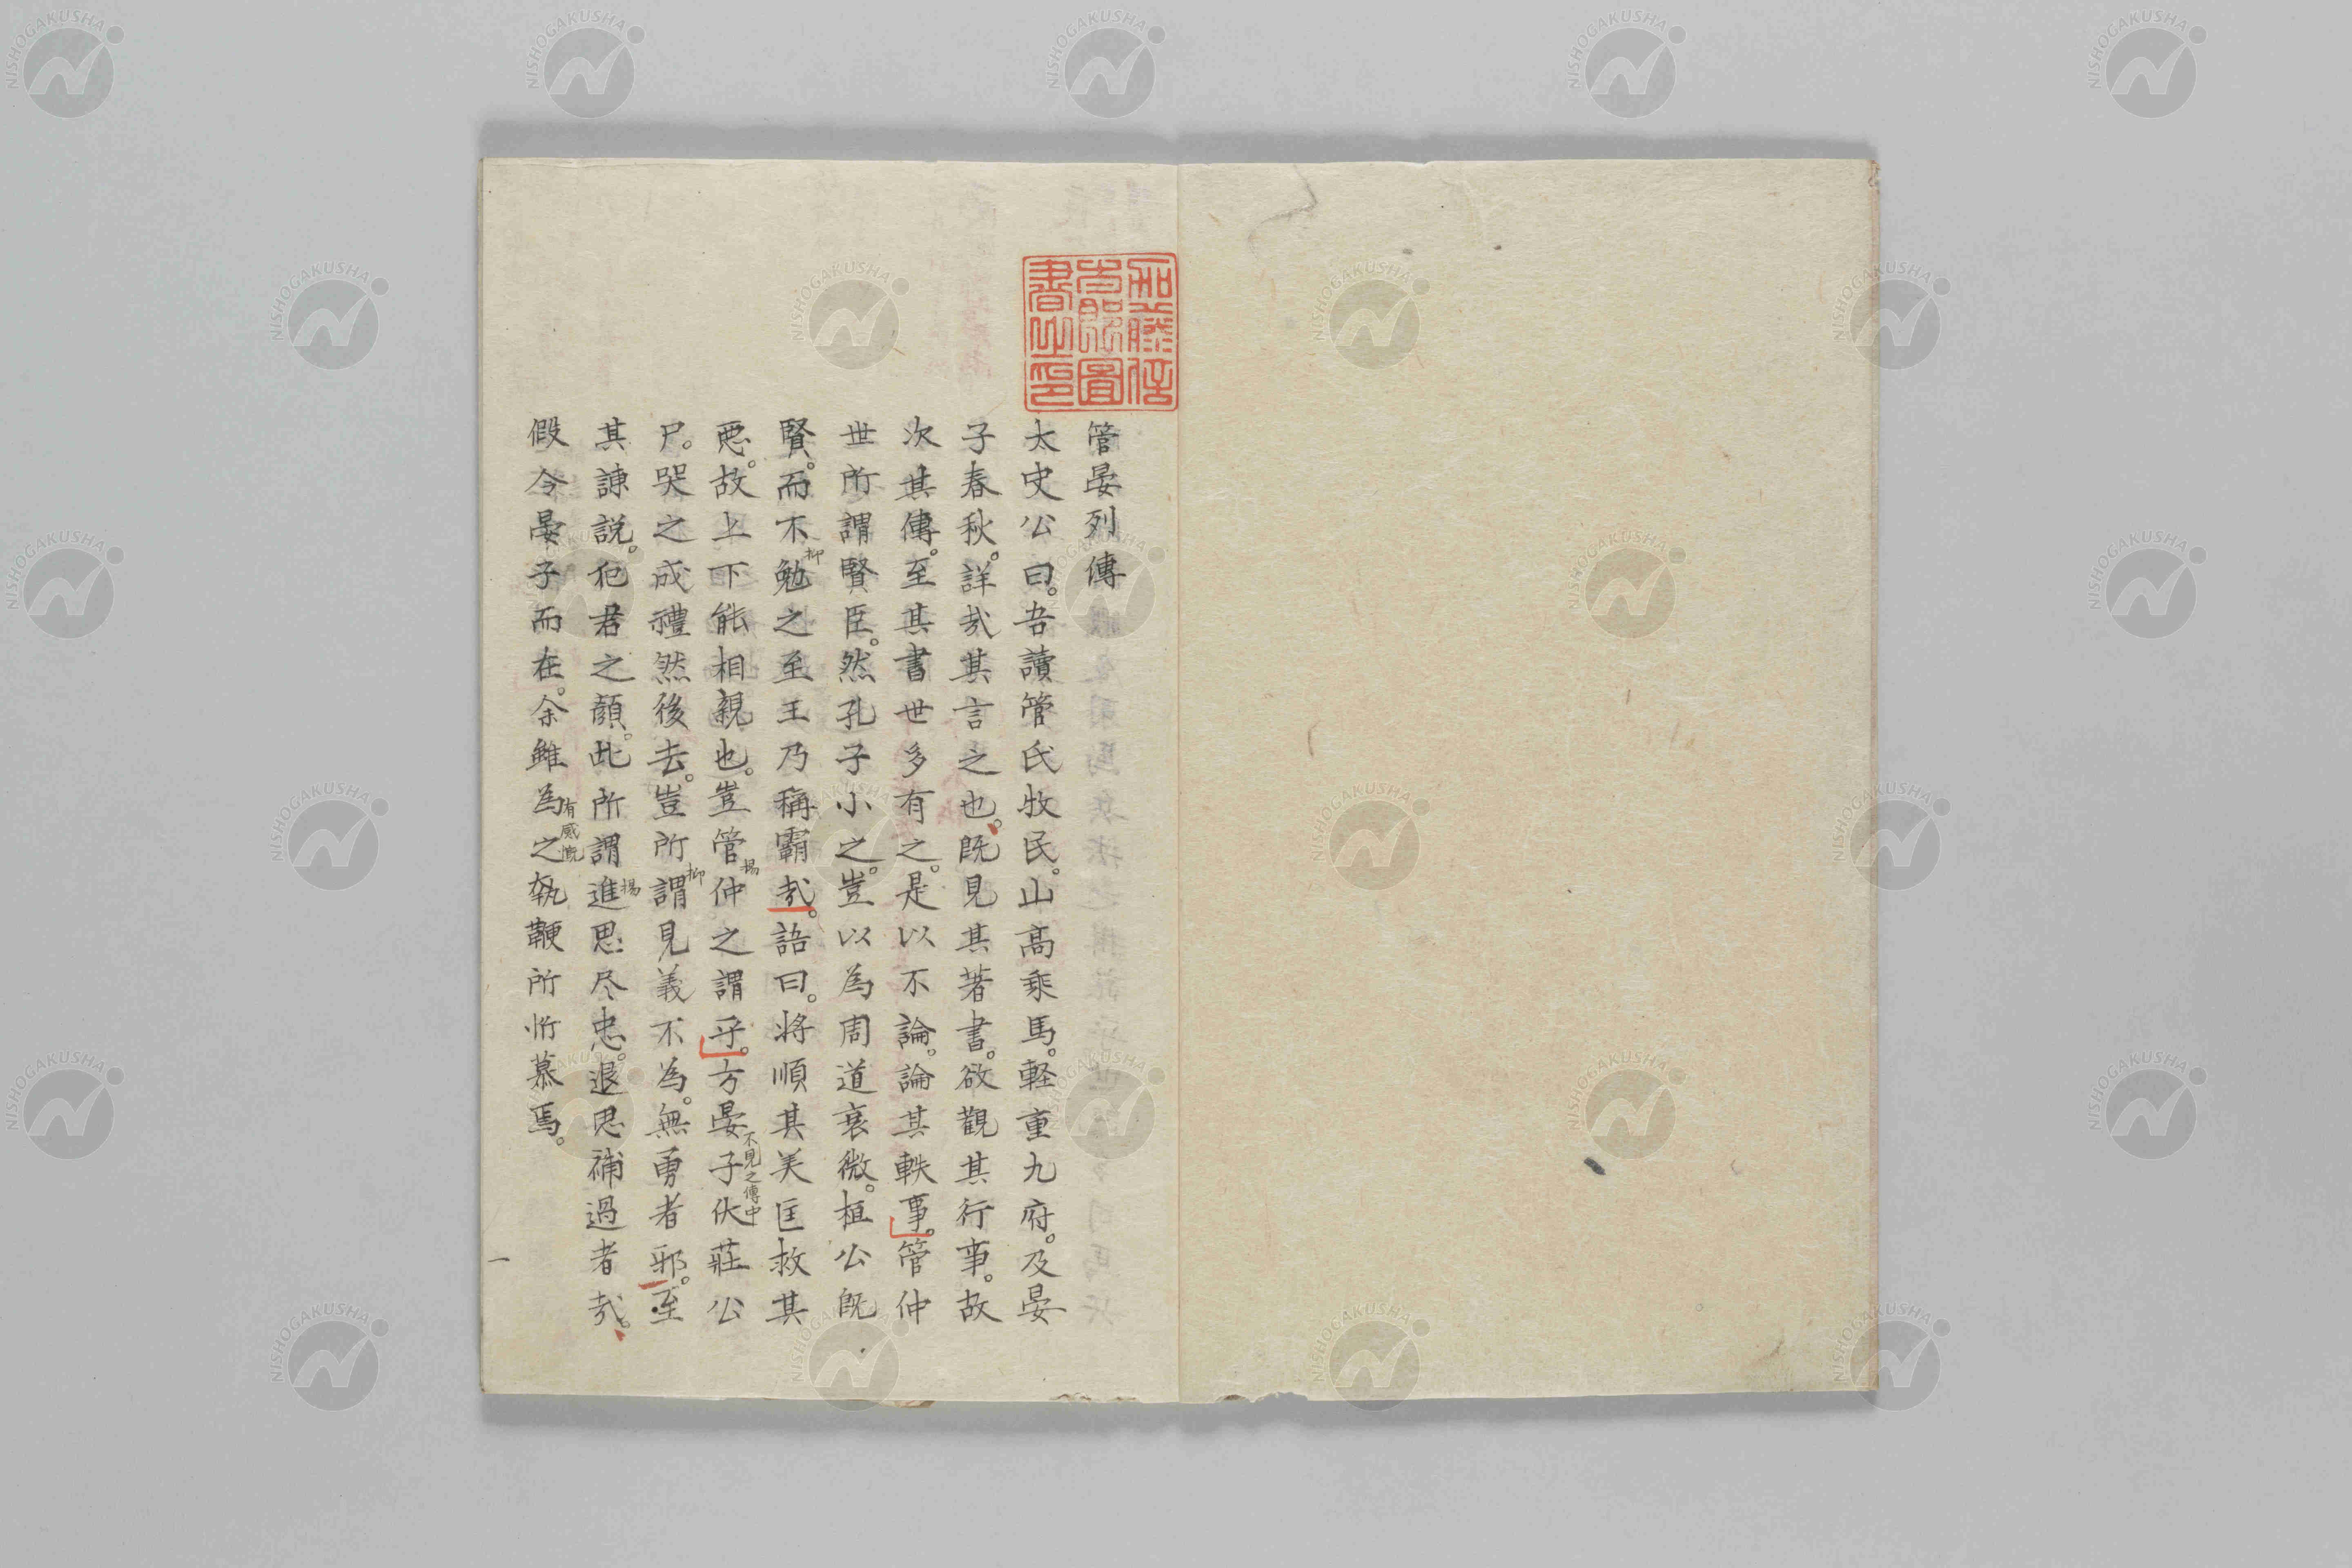 管晏列傳
太史公曰。吾讀管氏牧民。山高乘馬。軽重九府。及晏
子春秋。詳哉其言之也。既見其著書。欲觀其行事。故
次其傳。至其書世多有之。是以不論。論其軼事。管仲
世所謂賢臣。然孔子小之。豈以為周道衰微。桓公既
賢。而不勉之至王乃稱霸哉。語曰。将順其美匡救其
抑
惡。故上下能相親也。豈管仲之謂乎。方晏子伏莊公
揚
不見之傳中
尸。哭之成禮然後去。豈所謂見義不為。無勇者邪。至
抑
其諌説。犯君之顔。此所謂進思尽忠。退思補過者哉。
揚
假令晏子而在。余雖為之執鞭所忻慕焉。
有感慨
一
NISHOGAKUSHA